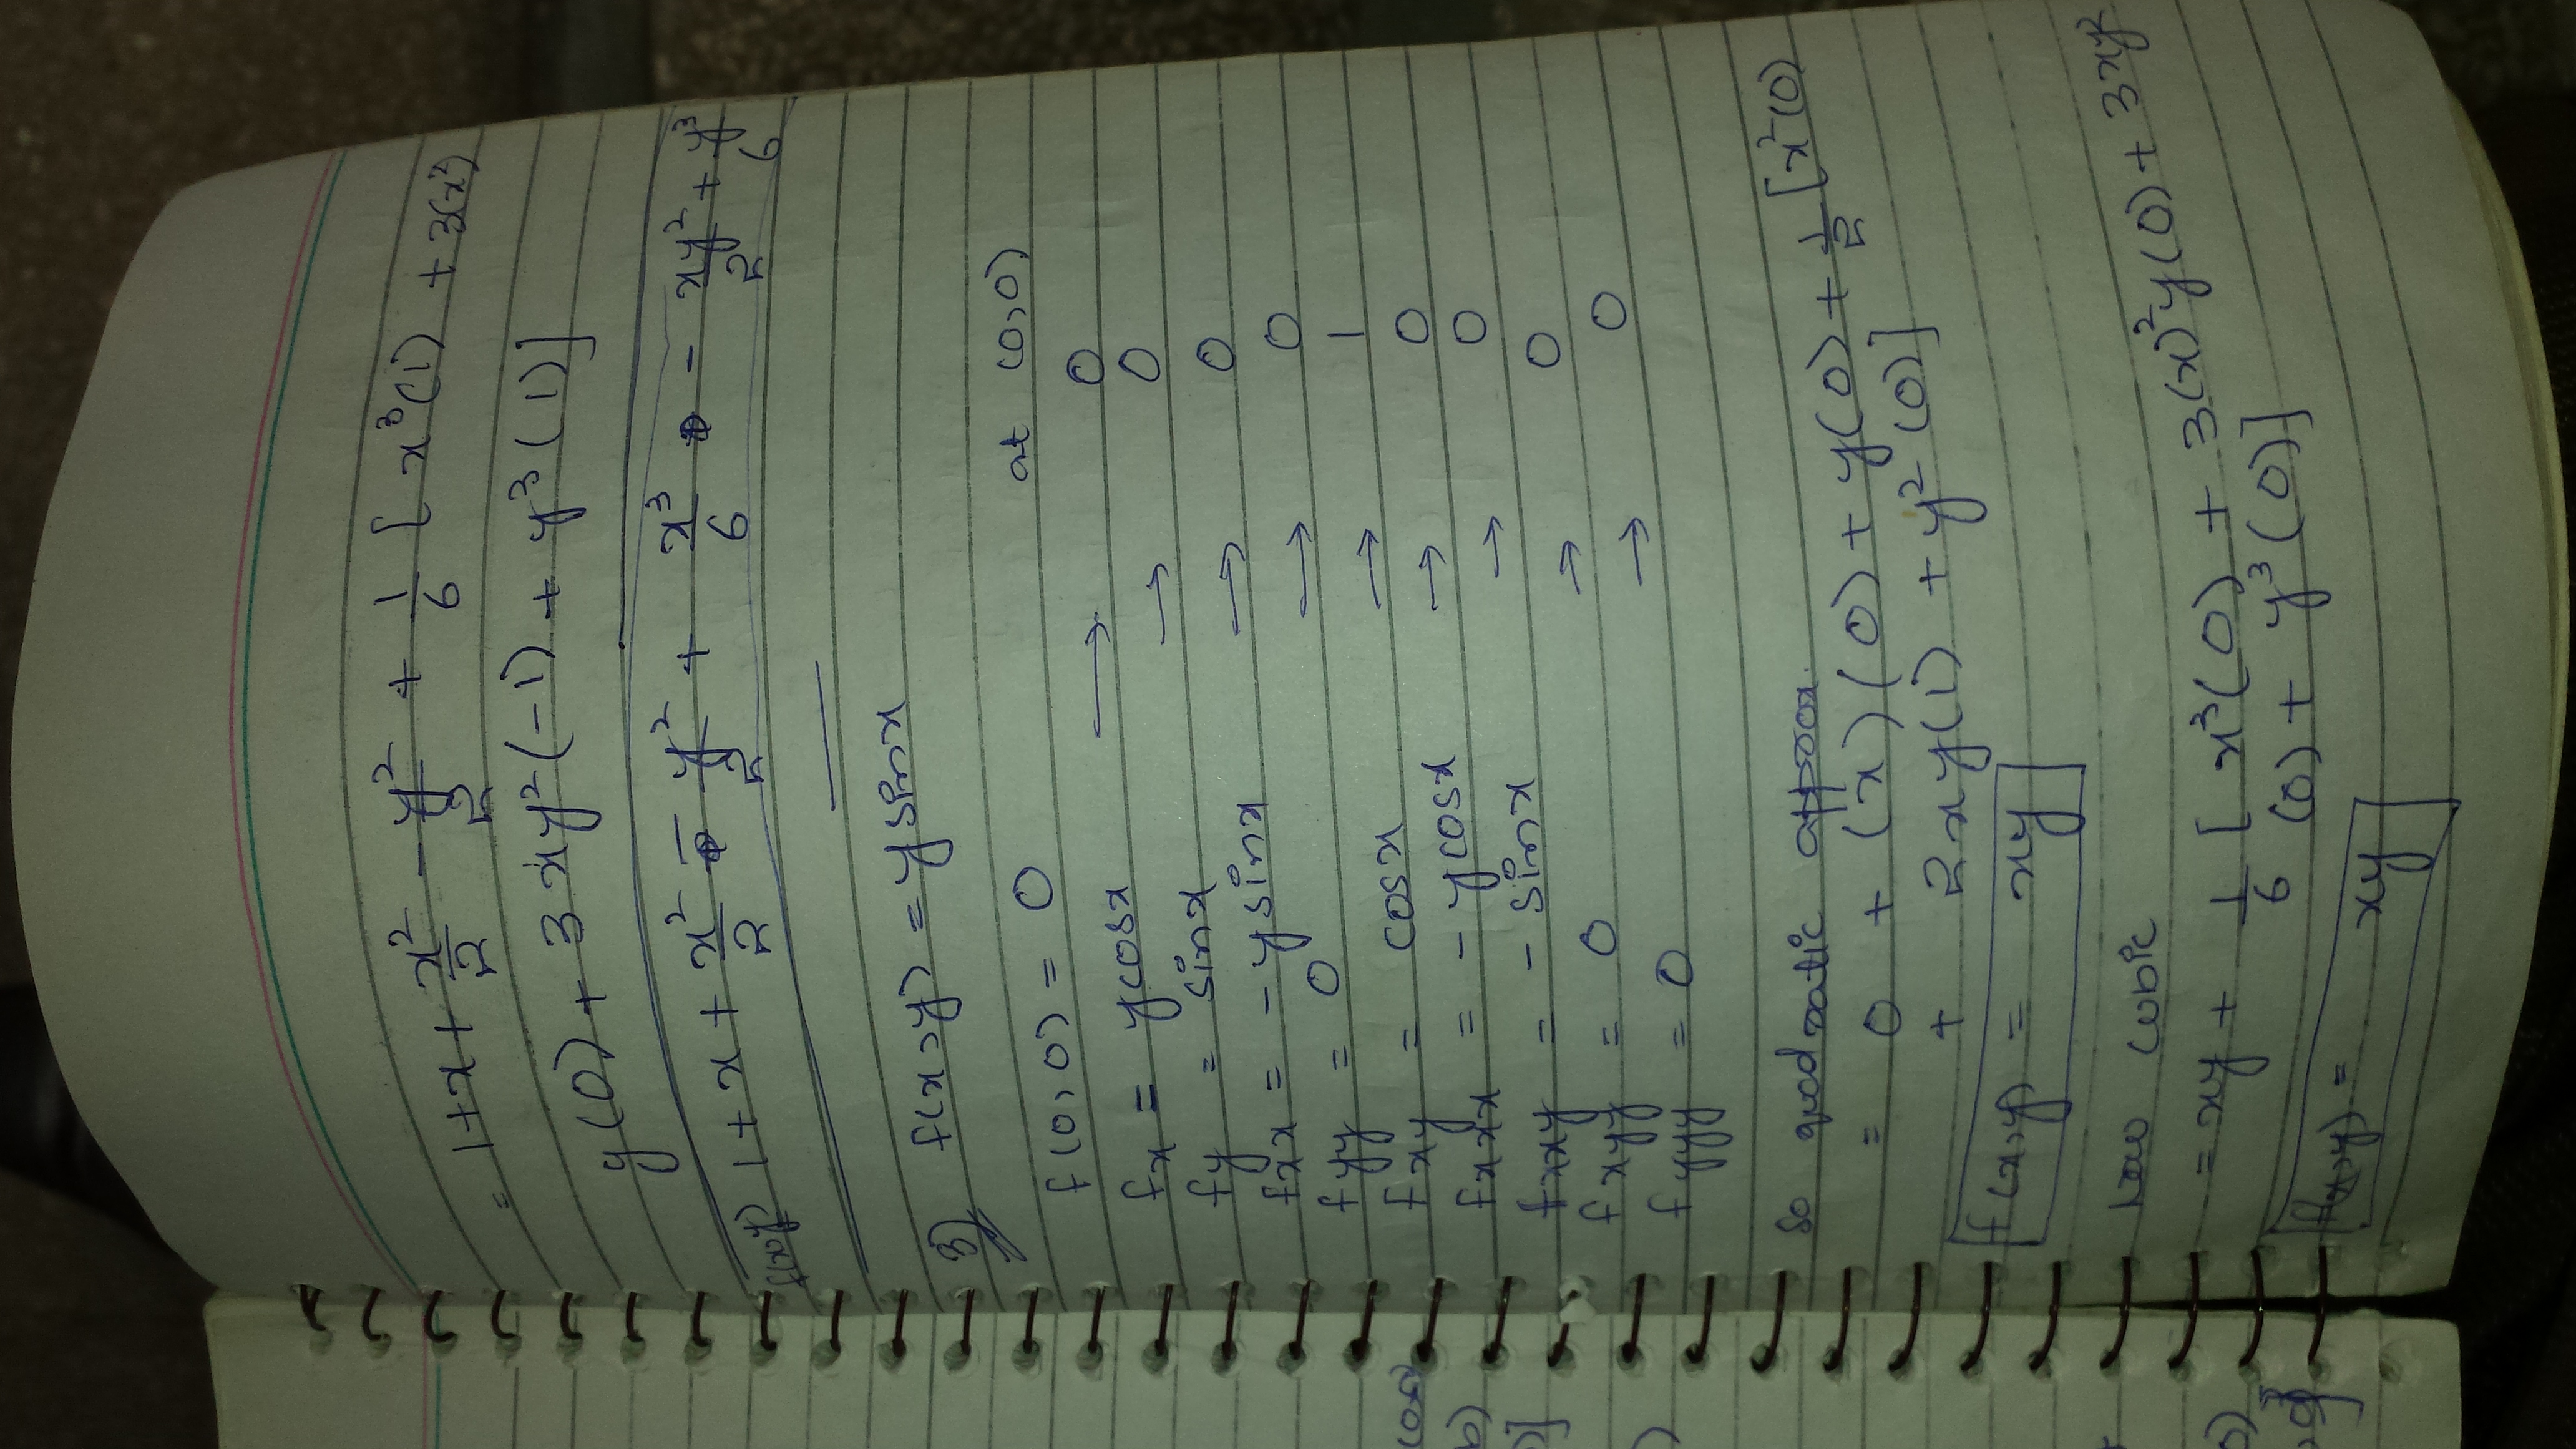 = 1+x+ x²/2 - y²/2 + 1/6 [ x³(1) + 3(x²)
y(0) + 3xy²(-1) + y³(1)]
f(x,y) 1+x+ x²/2 - y²/2 + x³/6 - xy²/2 + y³/6
3) f(x,y) = y sinx
f(0,0) = 0 at (0,0)
fx = ycosx → 0
fy = sinx → 0
fxx = -ysinx → 0
fyy = 0 → 0
fxy = cosx → 1
fxxx = -ycosx → 0
fxxy = -sinx → 0
fxyy = 0 → 0
fyyy = 0 → 0
So quadratic approx.
= 0 + (x)(0) + y(0) + 1/2 [x²(0)
+ 2xy(1) + y²(0)]
f(x,y) = xy
Now cubic
= xy + 1/6 [ x³(0) + 3(x)²y(0) + 3xy²
(0) + y³(0)]
f(x,y) = xy
b)
)]
)
0)